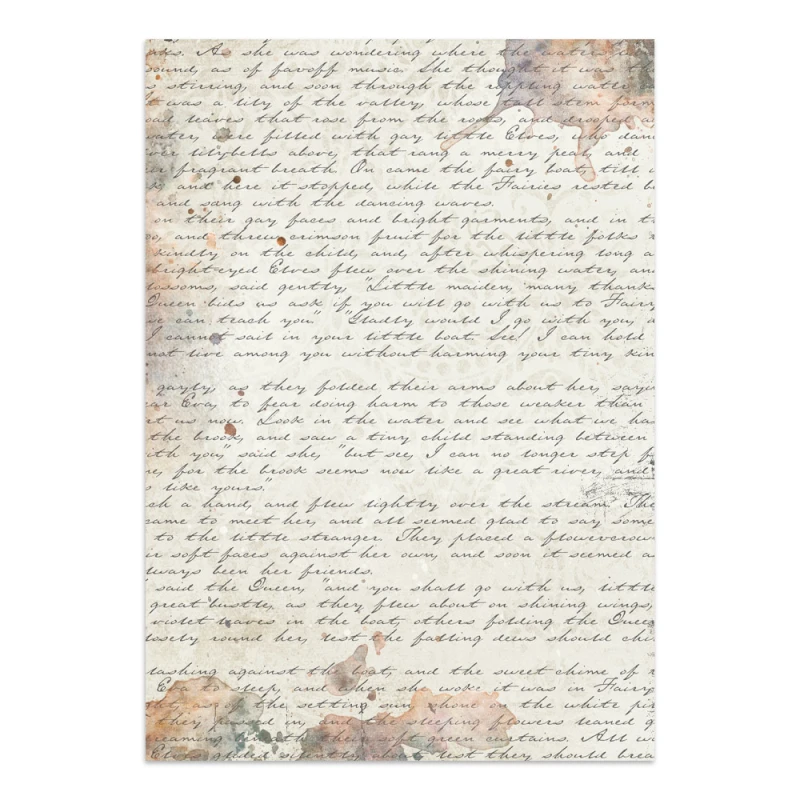 aks. As she was wondering where the waters
sound, as of faroff music. She thought it was t
s stirring, and soon through the rippling water
t was a lily of the valley, whose tall stem form
oad leaves that rose from the roots, and drooped a
water, were filled with gay little Elves, who danc
ver lilybells above, that rang a merry peal, and
ir fragrant breath. On came the fairy boat, till i
k; and here it stopped, while the Fairies rested b
and sang with the dancing waves.
on their gay faces and bright garments, and in t
o, and threw crimson fruit for the little folks
kindly on the child, and, after whispering long a
bright-eyed Elves flew over the shining water, an
lossoms, said gently, "Little maiden, many thank
Queen bids us ask if you will go with us to Fairy
we can teach you." "Gladly would I go with you,
I cannot sail in your little boat. See! I can hold
not live among you without harming your tiny kin
gayly, as they folded their arms about her, sayin
ear Eva, to fear doing harm to those weaker than
rt us now. Look in the water and see what we ha
the brook, and saw a tiny child standing between
ith you," said she, "but see, I can no longer step
ne, for the brook seems now like a great river, and
s like yours."
ch a hand, and flew lightly over the stream. The
came to meet her, and all seemed glad to say some
to the little stranger. They placed a flowercrow
ir soft faces against her own, and soon it seemed a
lways been her friends.
" said the Queen, "and you shall go with us, little
great bustle, as they flew about on shining wings,
violet leaves in the boat, others folding the Quee
losely round her, lest the falling dews should chi
lashing against the boat, and the sweet chime of
Eva to sleep, and when she woke it was in Fairy
as of the setting sun, shone on the white pi
they passed in, and the sleeping flowers leaned
reaming beneath their soft green curtains. All w
Elves glided silently lest they should brea